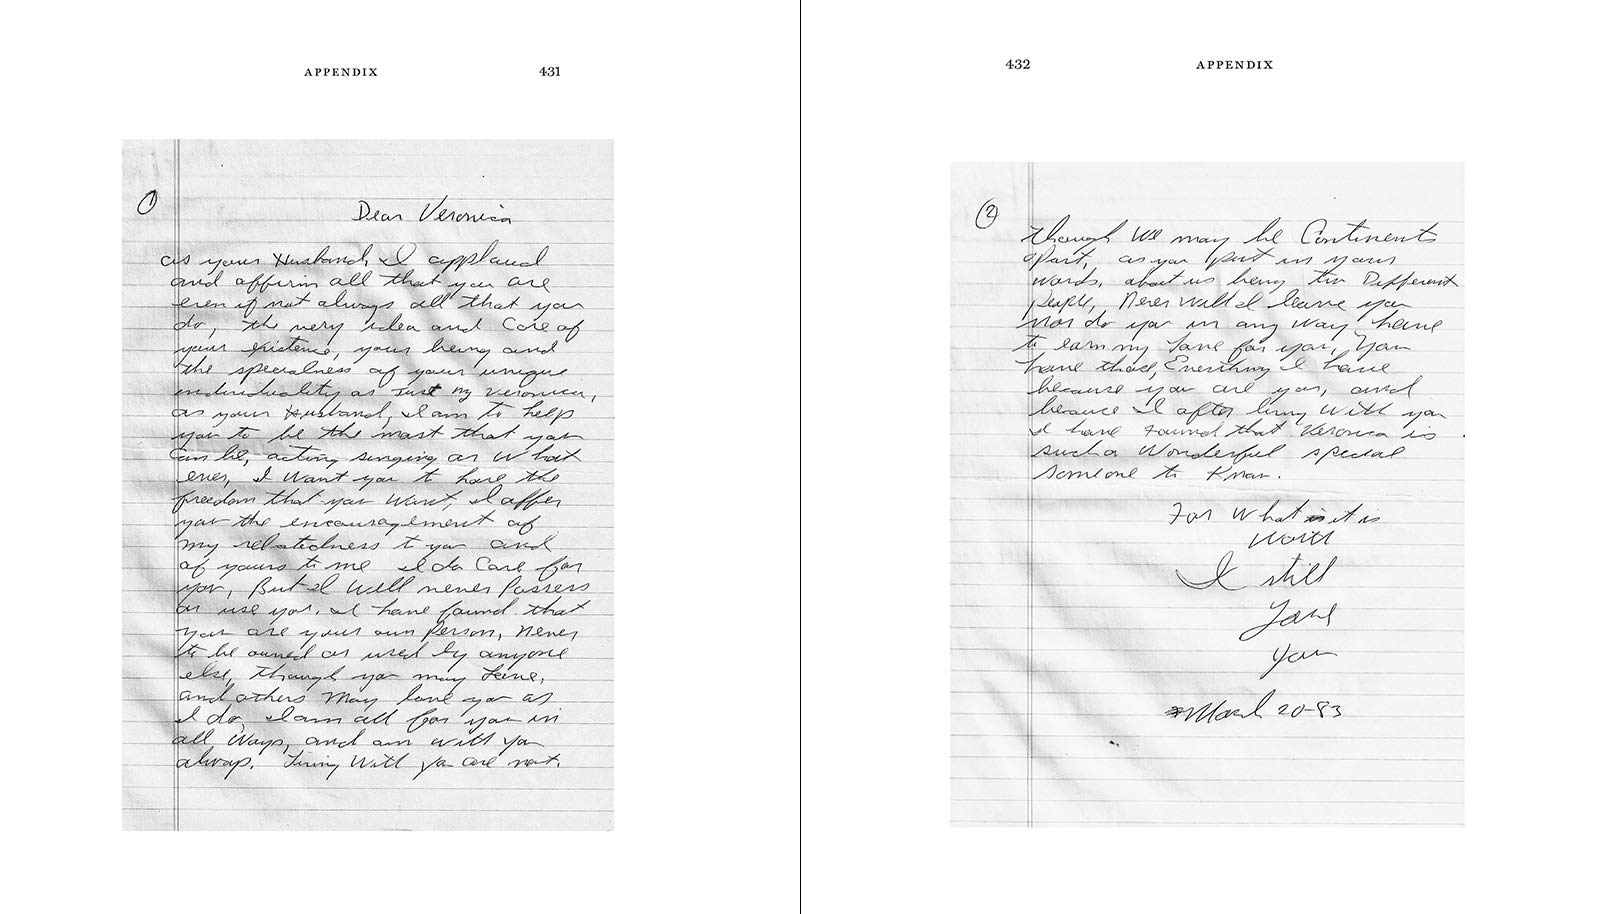 APPENDIX 431
1
Dear Veronica
as your Husband, I applaud
and affirm all that you are
even if not always all that you
do, the very idea and Core of
your existence, your being and
the specialness of your unique
individuality as Just my Veronica,
as your Husband, I am to help
you to be the most that you
Can be, acting singing or What
ever, I Want you to have the
freedom that you Want, I offer
you the encouragement of
my relatedness to you and
of yours to me I do Care for
you, But I Will never Possess
or use you. I have found that
you are your own Person, Never
to be owned or used by anyone
else, Though you may Love,
and others May love you as
I do, I am all for you in
all Ways, and am with you
always. Living With you or not.
432 APPENDIX
2
though We may be Continents
apart, as you put in your
words, about us being two Different
People, Never Will I leave you
Nor do you in any Way have
to earn my Love for you, You
have those, Everything I have
because you are you, and
because I after living With you
I have Found that Veronica is
such a Wonderful special
Someone to Know.
For What it is
Worth
I still
Love
you
March 20-83